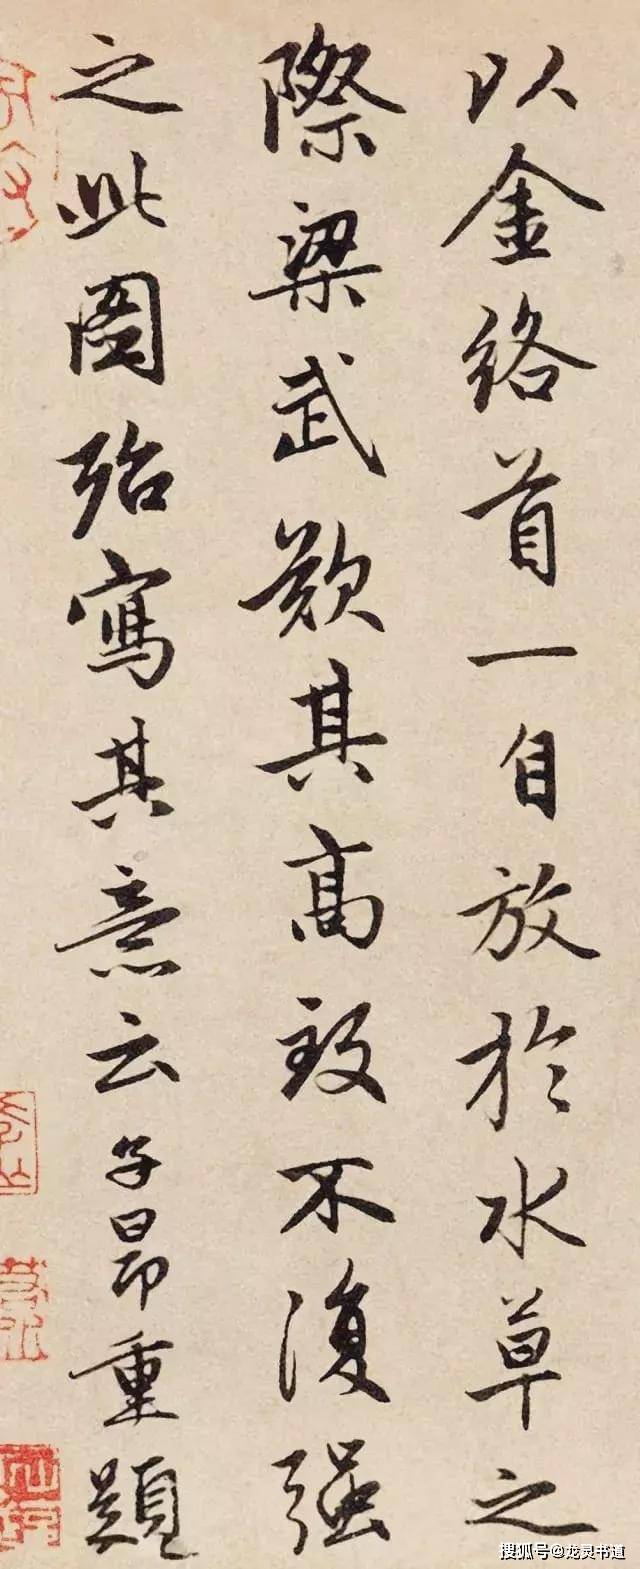 以金络首一自放於水草之
際梁武欽其高致不復强
之此圖殆寫其意云子昂重題
搜狐号@龙灵书道